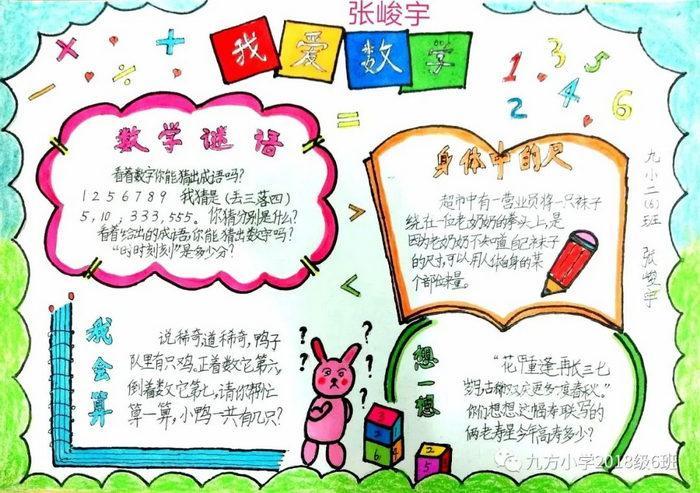 张峻宇
我爱数学
× ÷ +
−
1 2 3 4 5 6
=
>
<
数学谜语
看着数字你能猜出成语吗?
1 2 5 6 7 8 9 我猜是(丢三落四)
5,10; 333,555。你猜分别是什么?
看着给出的成语,你能猜出数字吗?
“的时刻刻”是多少分?
身体中的尺
超市中有一营业员将一只袜子
绕在一位老奶奶的拳头上,是
因为老奶奶不知道自己袜子
的尺寸,可以用人体自身的某
个部位来量。
九小二(6)班 张峻宇
我会算
说稀奇道稀奇,鸭子
队里有只鸡。正着数它第六,
倒着数它第七,请你帮忙
算一算,小鸭一共有几只?
? ? ? ? ?
3
2
6
2
5
想一想
“花甲重逢再长三七
岁月
古稀双庆更多一度春秋。”
你们想想这幅寿联写的
俩老寿星今年高寿多少?
九方小学2018级6班